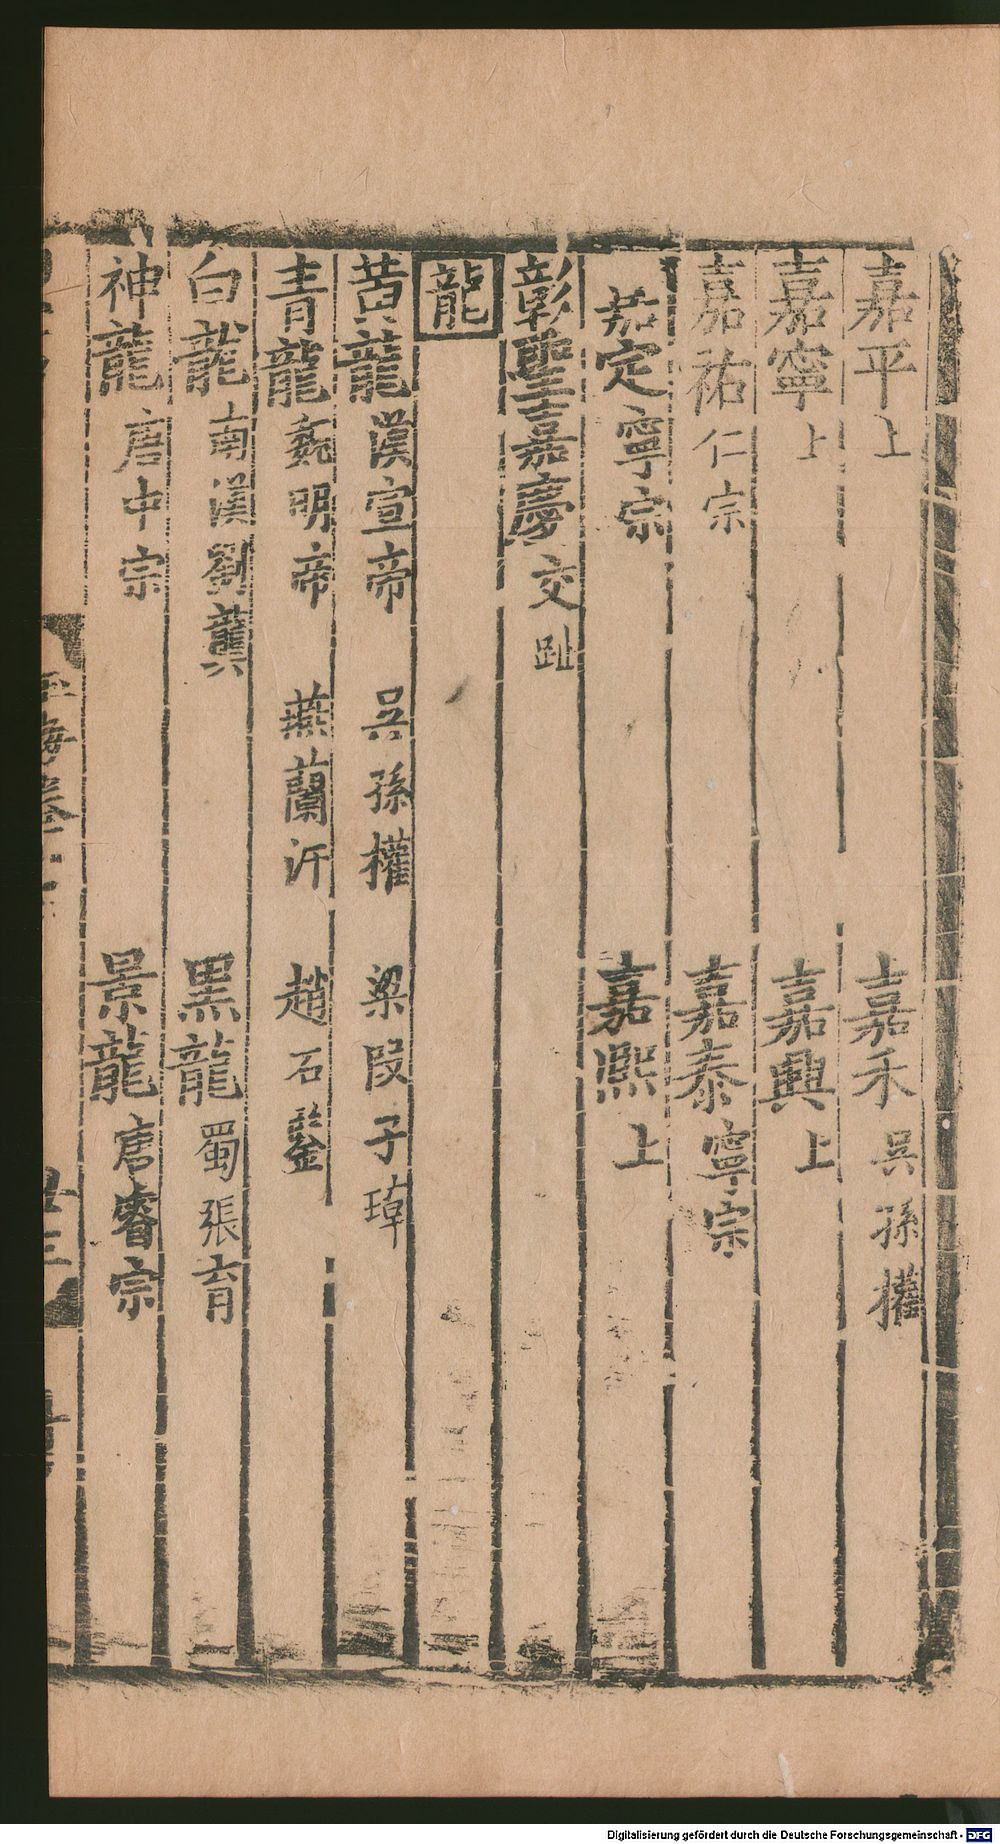 嘉平上 嘉禾吳孫權
嘉寧上 嘉興上
嘉祐仁宗 嘉泰寧宗
嘉定寧宗 嘉熙上
彰聖嘉慶交趾
龍
黃龍漢宣帝 吳孫權 梁段子璋
青龍魏明帝 燕蘭汗 趙石鑒
白龍南漢劉龑 黑龍蜀張育
神龍唐中宗 景龍唐睿宗
Digitalisierung gefördert durch die Deutsche Forschungsgemeinschaft - DFG